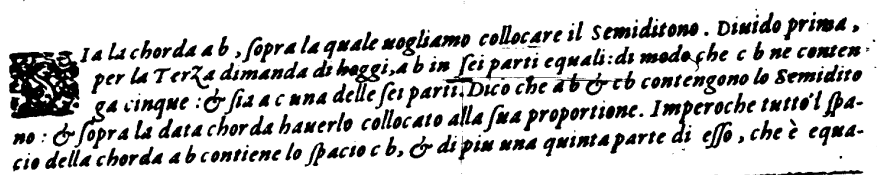 SIa la chorda a b, ſopra la quale uogliamo collocare il Semiditono. Diuido prima,
per la Terza dimanda di hoggi, a b in ſei parti equali: di modo, che c b ne conten
ga cinque: & ſia a c una delle ſei parti. Dico che a b & c b contengono lo Semidito
no: & ſopra la data chorda hauerlo collocato alla ſua proportione. Imperoche tutto'l ſpa-
cio della chorda a b contiene lo ſpacio c b, & di piu una quinta parte di eſſo, che è equa-